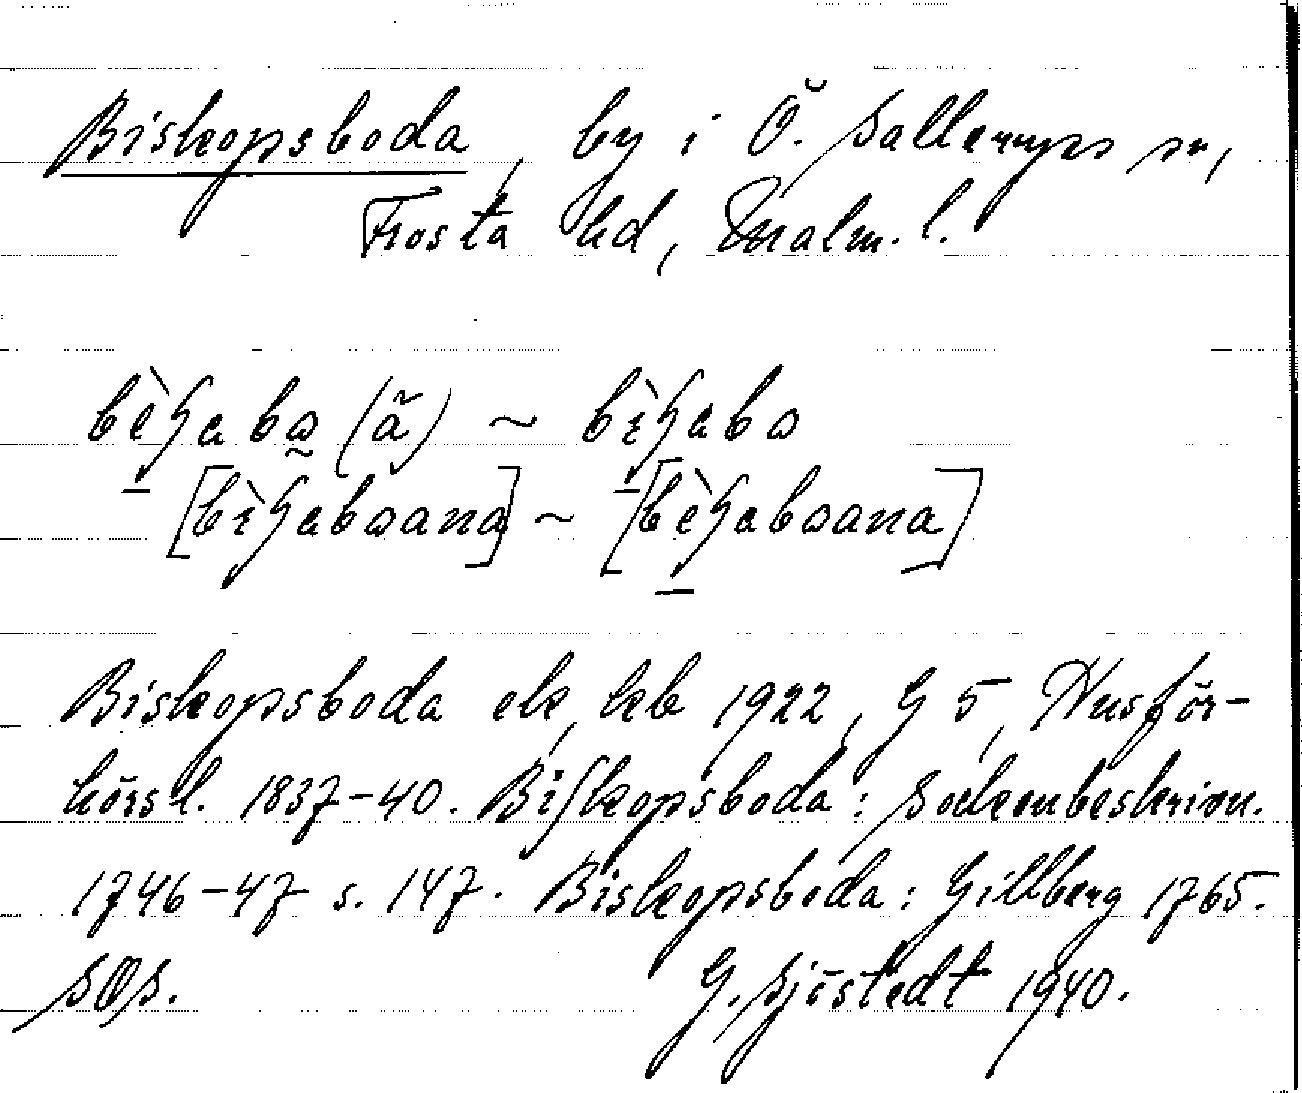 Biskopsboda, by i Ö. Sallerups sn,
Frosta hd, Malm. l.
Biskopsboda ek, kb 1922, G 5, Husför-
hörsl. 1837-40. Bifkopsboda: Sockenbeskrivn.
1746-47 s. 147. Biskopsboda: Gillberg 1765.
SOS.
G. Sjöstedt 1940.